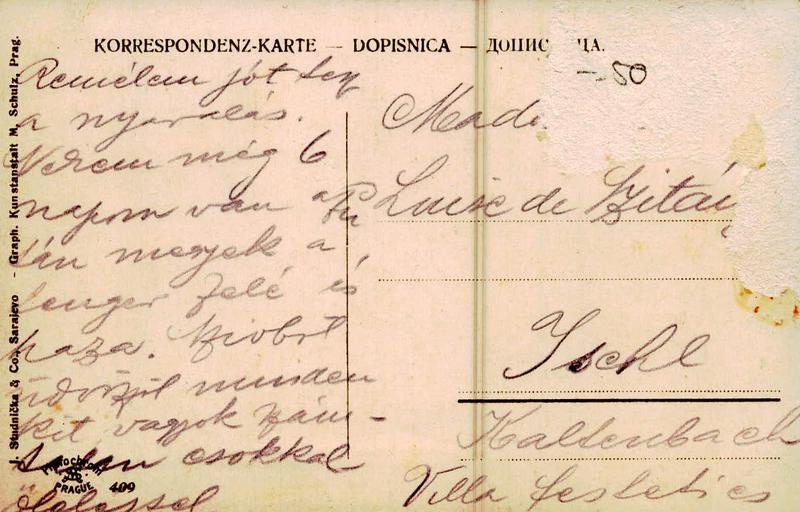 KORRESPONDENZ-KARTE — DOPISNICA — ДОПИС ЦА.
—50
Remélem jót tesz
a nyaralás.
Nekem még 6
napom van a
tán megyek a
tenger felé és
haza. Szivből
üdvözöl minden
kit vagyok szám-
talan csokkal
öleléssel
Made
Luise de
Ischl
Kaltenbach
Villa Festetics
J. Studnička & Co., Sarajevo - Graph. Kunstanstalt M. Schulz, Prag.
PRAGUE 409